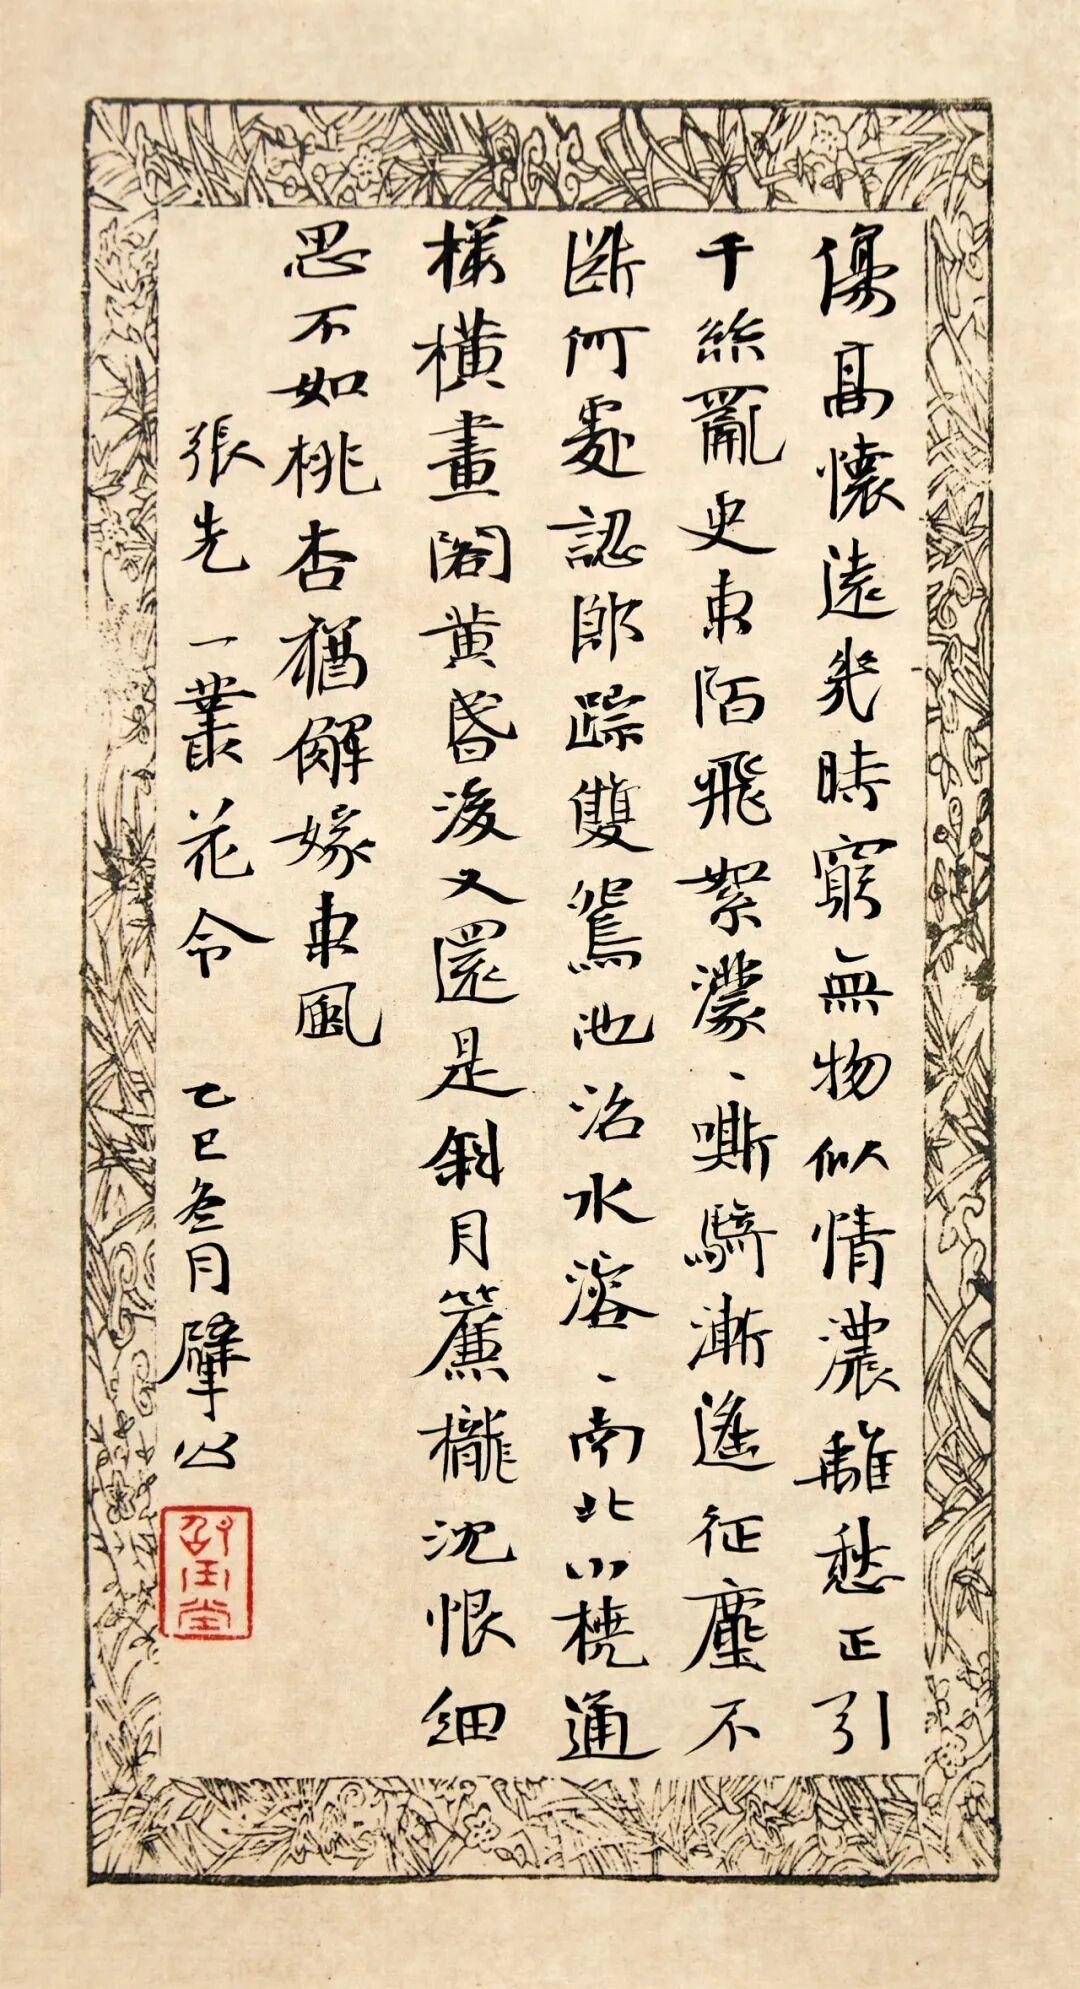 傷高懷遠幾時窮無物似情濃離愁正引
千絲亂更東陌飛絮濛、嘶騎漸遙征塵不
斷何處認郎踪雙鴛池沼水溶、南北小橈通
梯橫畫閣黃昏後又還是斜月簾櫳沈恨細
思不如桃杏猶解嫁東風
張先 一叢花令 乙巳叁月擘公